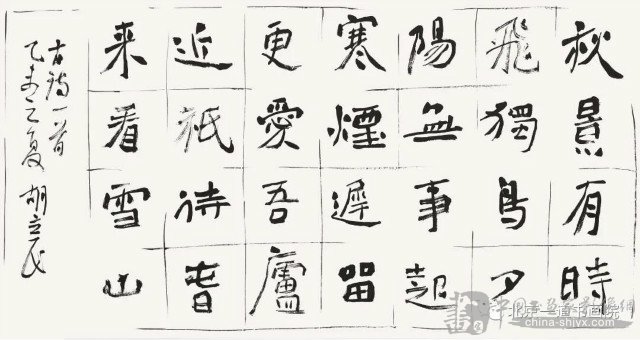 秋景有時
飛獨鳥夕
陽無事起
寒煙遲留
更愛吾廬
近祇待春
来看雪山
古詩一首
乙未之夏 胡立民
china-shjyx.com